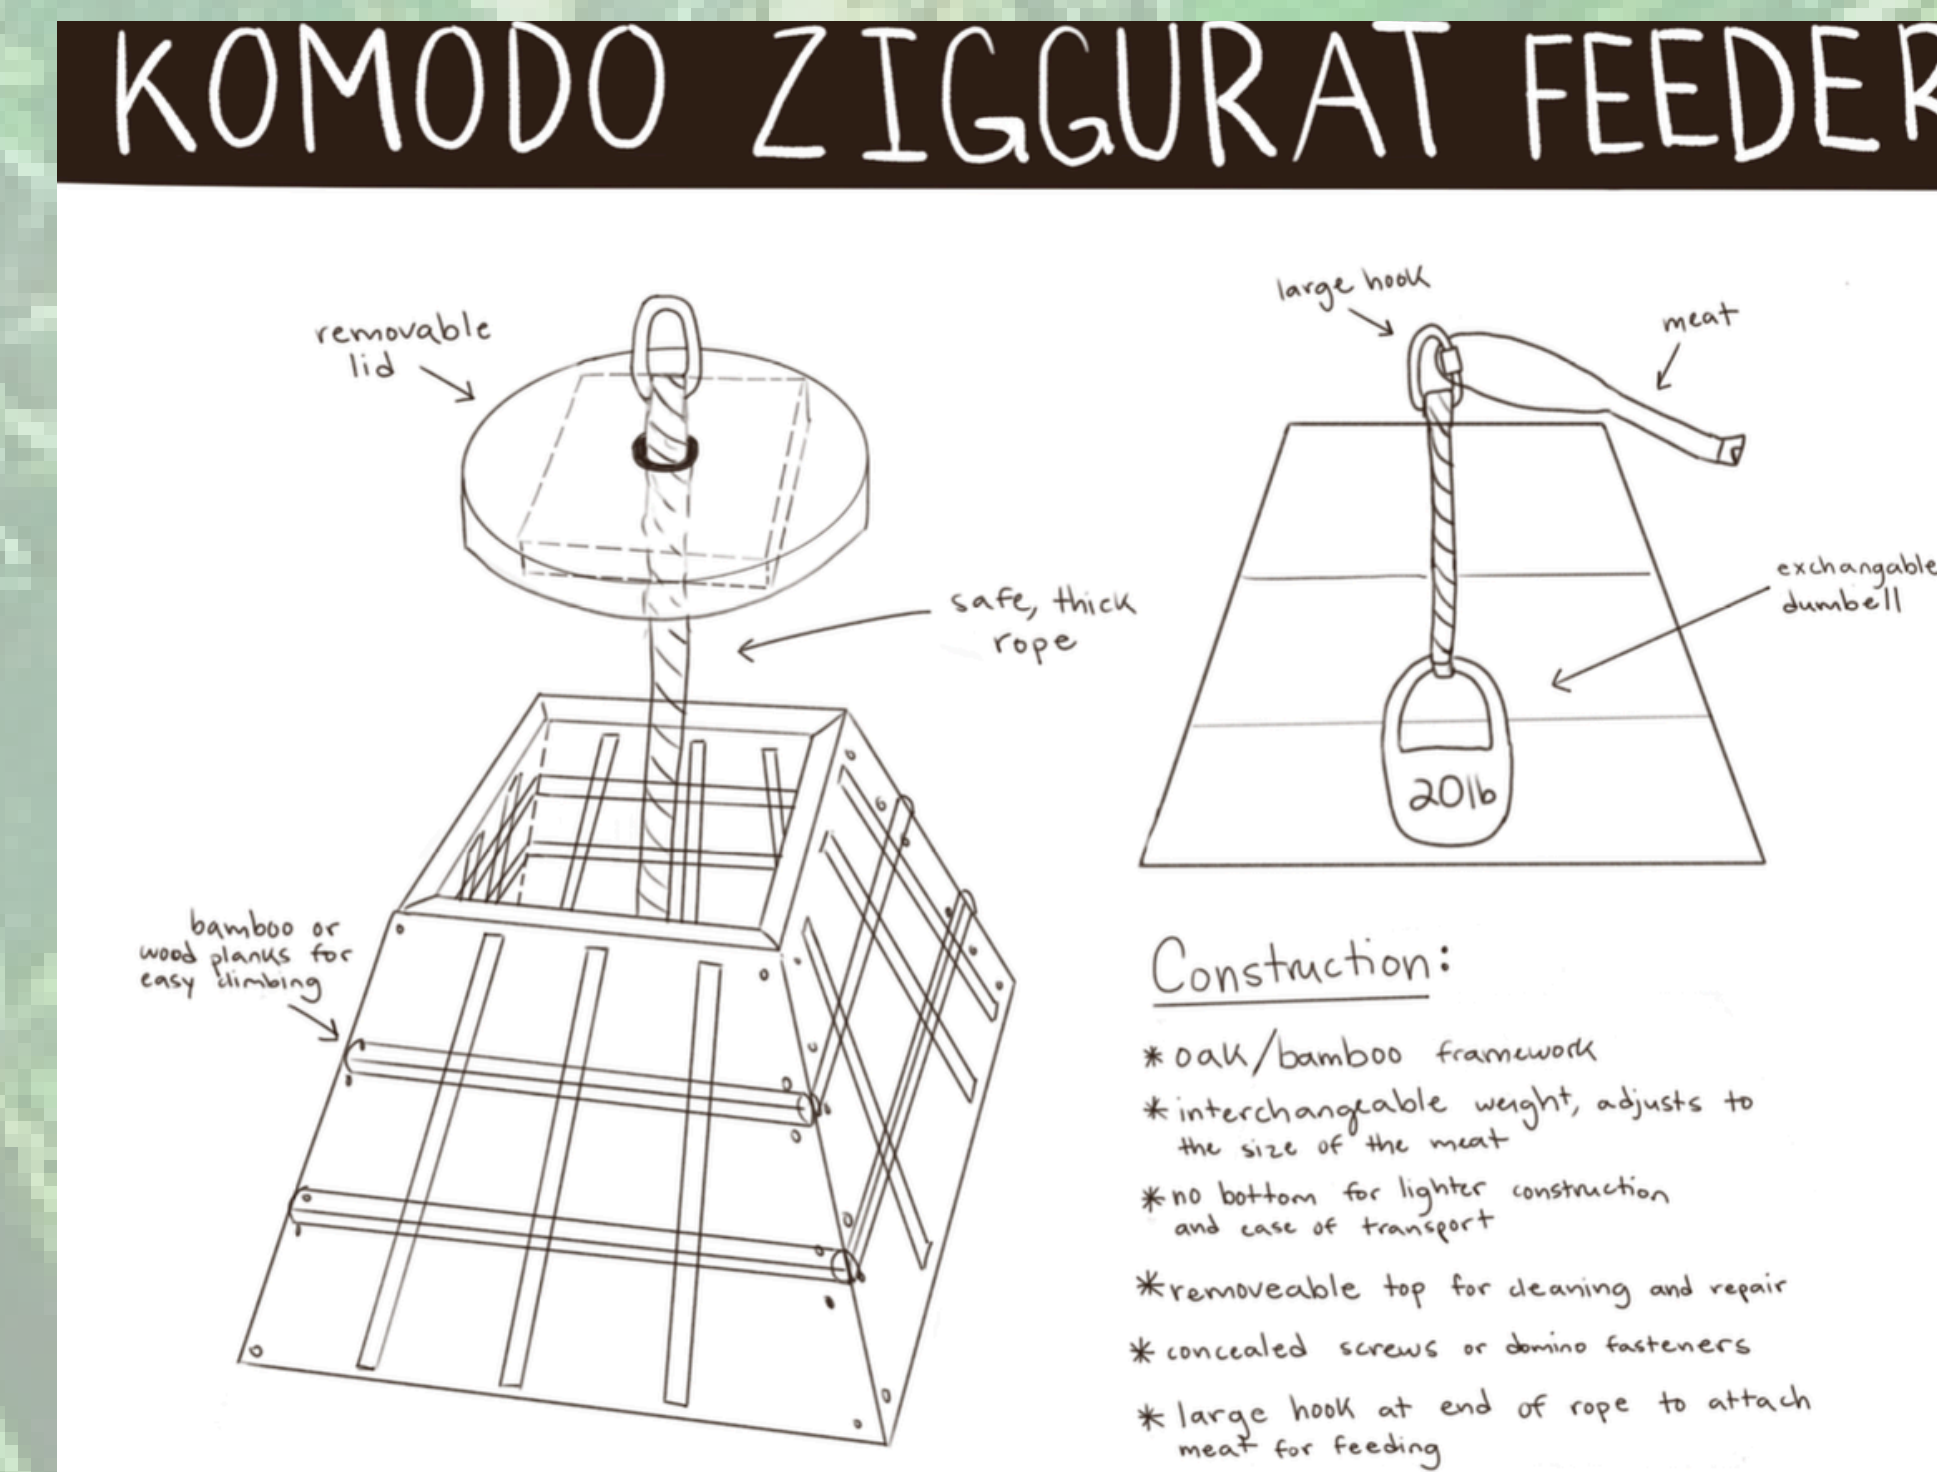 KOMODO ZIGGURAT FEEDER
removable
lid
safe, thick
rope
bamboo or
wood planks for
easy climbing
large hook
meat
exchangable
dumbell
20lb
Construction:
* oak/bamboo framework
* interchangeable weight, adjusts to
the size of the meat
* no bottom for lighter construction
and ease of transport
* removeable top for cleaning and repair
* concealed screws or domino fasteners
* large hook at end of rope to attach
meat for feeding